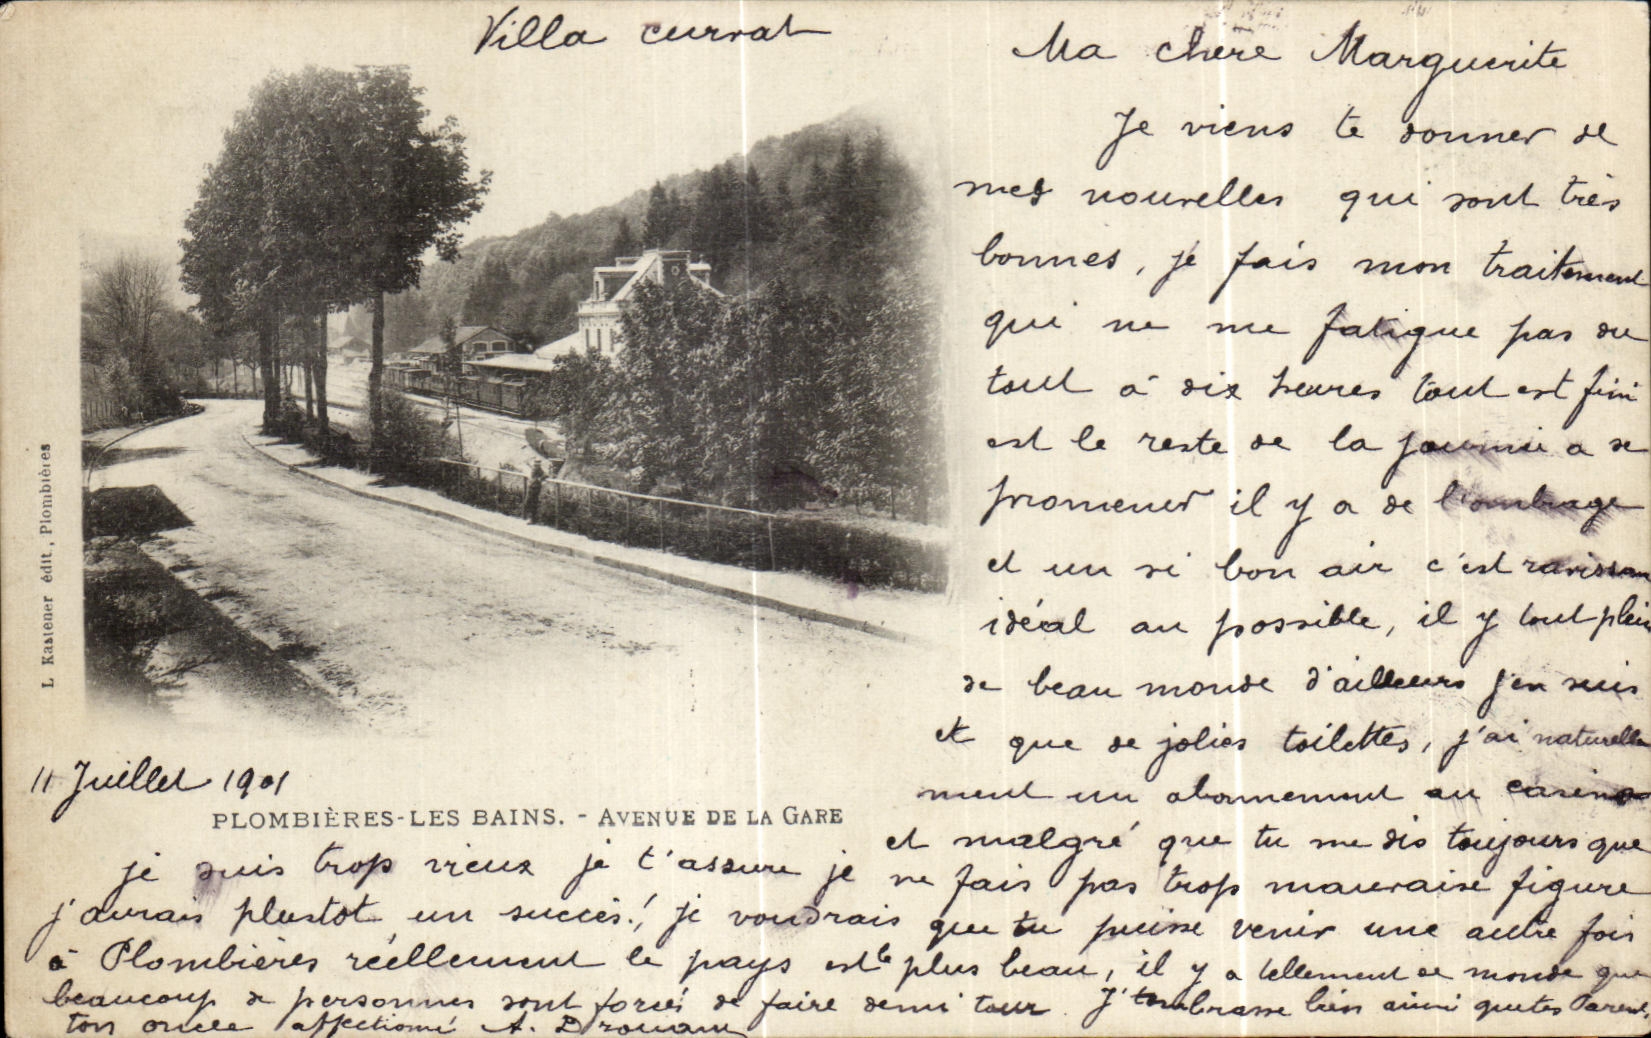 Villa
Ma chère Marguerite
Je viens te donner de
mes nouvelles qui sont très
bonnes, je fais mon traitement
qui ne me fatigue pas du
tout à dix heures tout est fini
est le reste de la journée a se
promener il y a de l'ombrage
et un si bon air c'est ravissan
idéal au possible, il y tout plein
de beau monde d'ailleurs j'en suis
et que de jolies toilettes, j'ai naturelle
ment un abonnement au casino
et malgré que tu me dis toujours que
je suis trop vieux je t'assure je ne fais pas trop mauvaise figure
j'aurais plustot un succès! je voudrais que tu puisse venir une autre fois
à Plombières réellement le pays est le plus beau, il y a tellement de monde que
beaucoup de personnes sont forcés de faire demi tour. J' t'embrasse bien ainsi que tes Parents
ton oncle affectionné A.
11 Juillet 1901
PLOMBIÈRES-LES BAINS. - AVENUE DE LA GARE
L. Kastener édit., Plombières